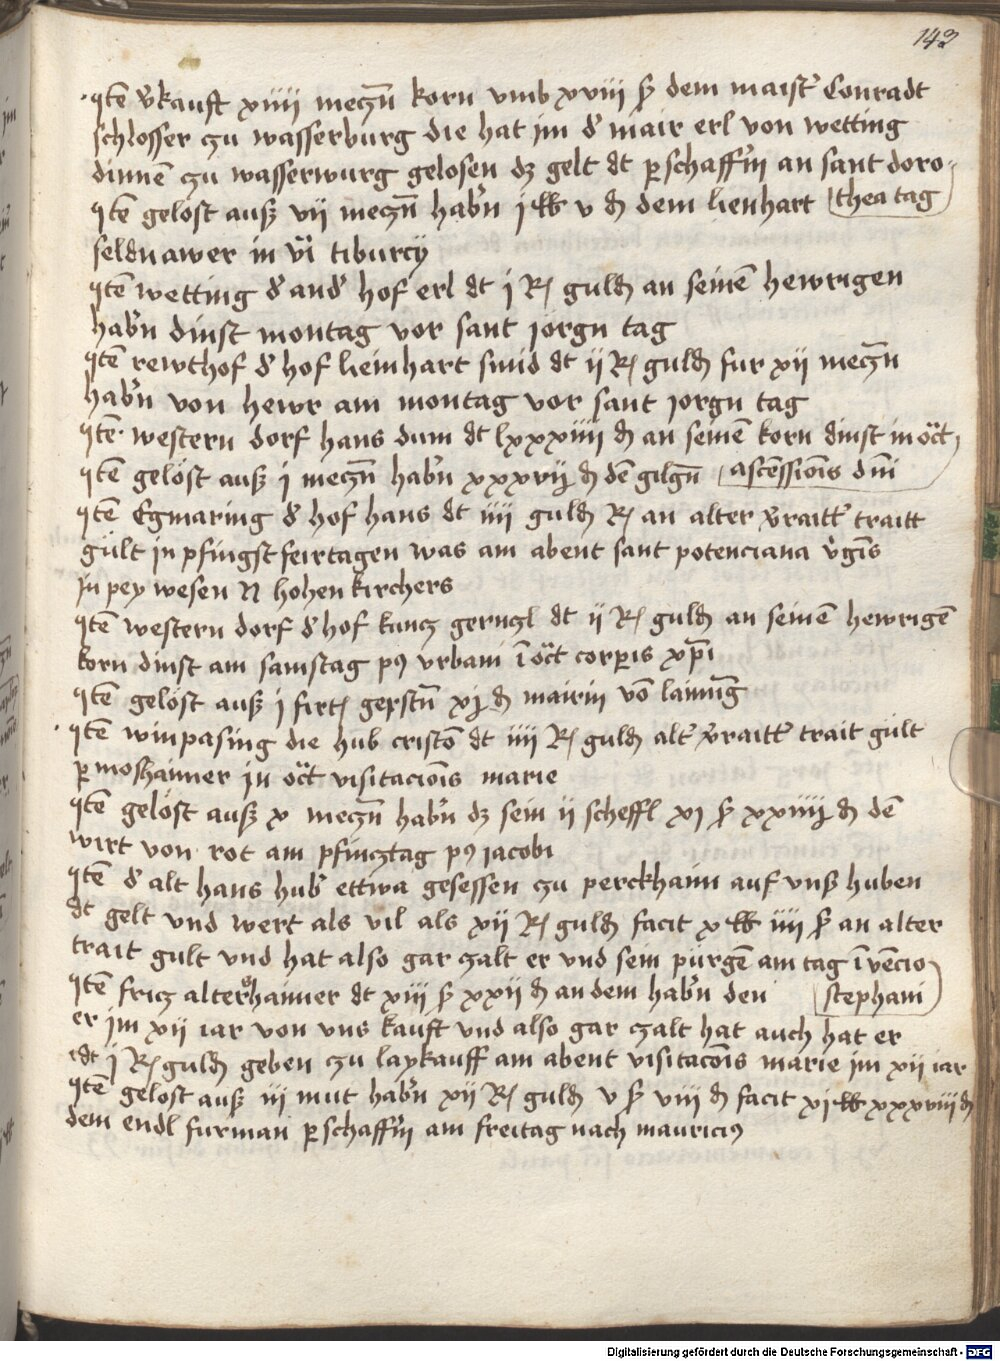 143
Itē v̄kauft xiiii meczn̄ korn vmb xviii ß dem maist̄ Conradt
schlosser czu wasserburg die hat im d̄ mair erl von wetting
dinnē czu wasserwurg gelosen dz gelt dt p schaffrīn an sant doro-
Itē gelöst auß vii meczn̄ hab̄n j lb v d̄ dem lienhart thea tag
seldnawer in v̄i tiburcy
Itē wetting d̄ and̄ hof erl dt j R guld̄ an seinē hewrigen
hab̄n dinst montag vor sant jorgn tag
Itē rewthof d̄ hof lienhart smid dt ii R guld̄ fur xii meczn̄
hab̄n von hewr am montag vor sant jorgn tag
Itē western dorf hans dum dt lxxxiiii d̄ an seinē korn dinst in oc̄t
Itē gelöst auß i meczn̄ hab̄n xxxvij d̄ dē gilgn̄ ascēssiōis dn̄i
Itē Egmaring d̄ hof hans dt iiii guld̄ R an alter v̄raitt̄ traitt
gült in pfingstfeirtagen was am abent sant potenciana v̄gīs
in pey wesen N hohenkirchers
Itē western dorf d̄ hof kuncz gernczl dt ii R guld̄ an seinē hewrigē
korn dinst am samstag p9 vrbani ī oc̄t corpis xp̄i
Itē gelöst auß j firt gerstn̄ xj d̄ mairin vō laimīg
Itē winpasing die hub cristō dt iiii R guld̄ alt̄ v̄raitt̄ trait gült
p moshaimer in oc̄t visitaciōis marie
Itē gelöst auß x meczn̄ hab̄n dz sein ii scheffl xi ß xxiiij d̄ dē
wirt von rot am pfincztag p9 jacobi
Itē d̄ alt hans hub̄ ettwa gesessen czu perckhaim auf vnß huben
dt gelt vnd wert als vil als xii R guld̄ facit x lb iiii ß an alter
trait gult vnd hat also gar czalt er vnd sein pürgē am tag īvēcio
Itē fricz alterhaimer dt xiii ß xxii d̄ an dem hab̄n den stephani
er im xii iar von vns kauft vnd also gar czalt hat auch hat er
dt j R guld̄ geben czu laykauff am abent visitacōis marie im xii iar
Itē gelöst auß iii mut hab̄n xii R guld̄ v ß viii d̄ facit xi lb xxxviii d̄
dem endl furman p schaffrīn am freitag nach mauricius
Digitalisierung gefördert durch die Deutsche Forschungsgemeinschaft - DFG